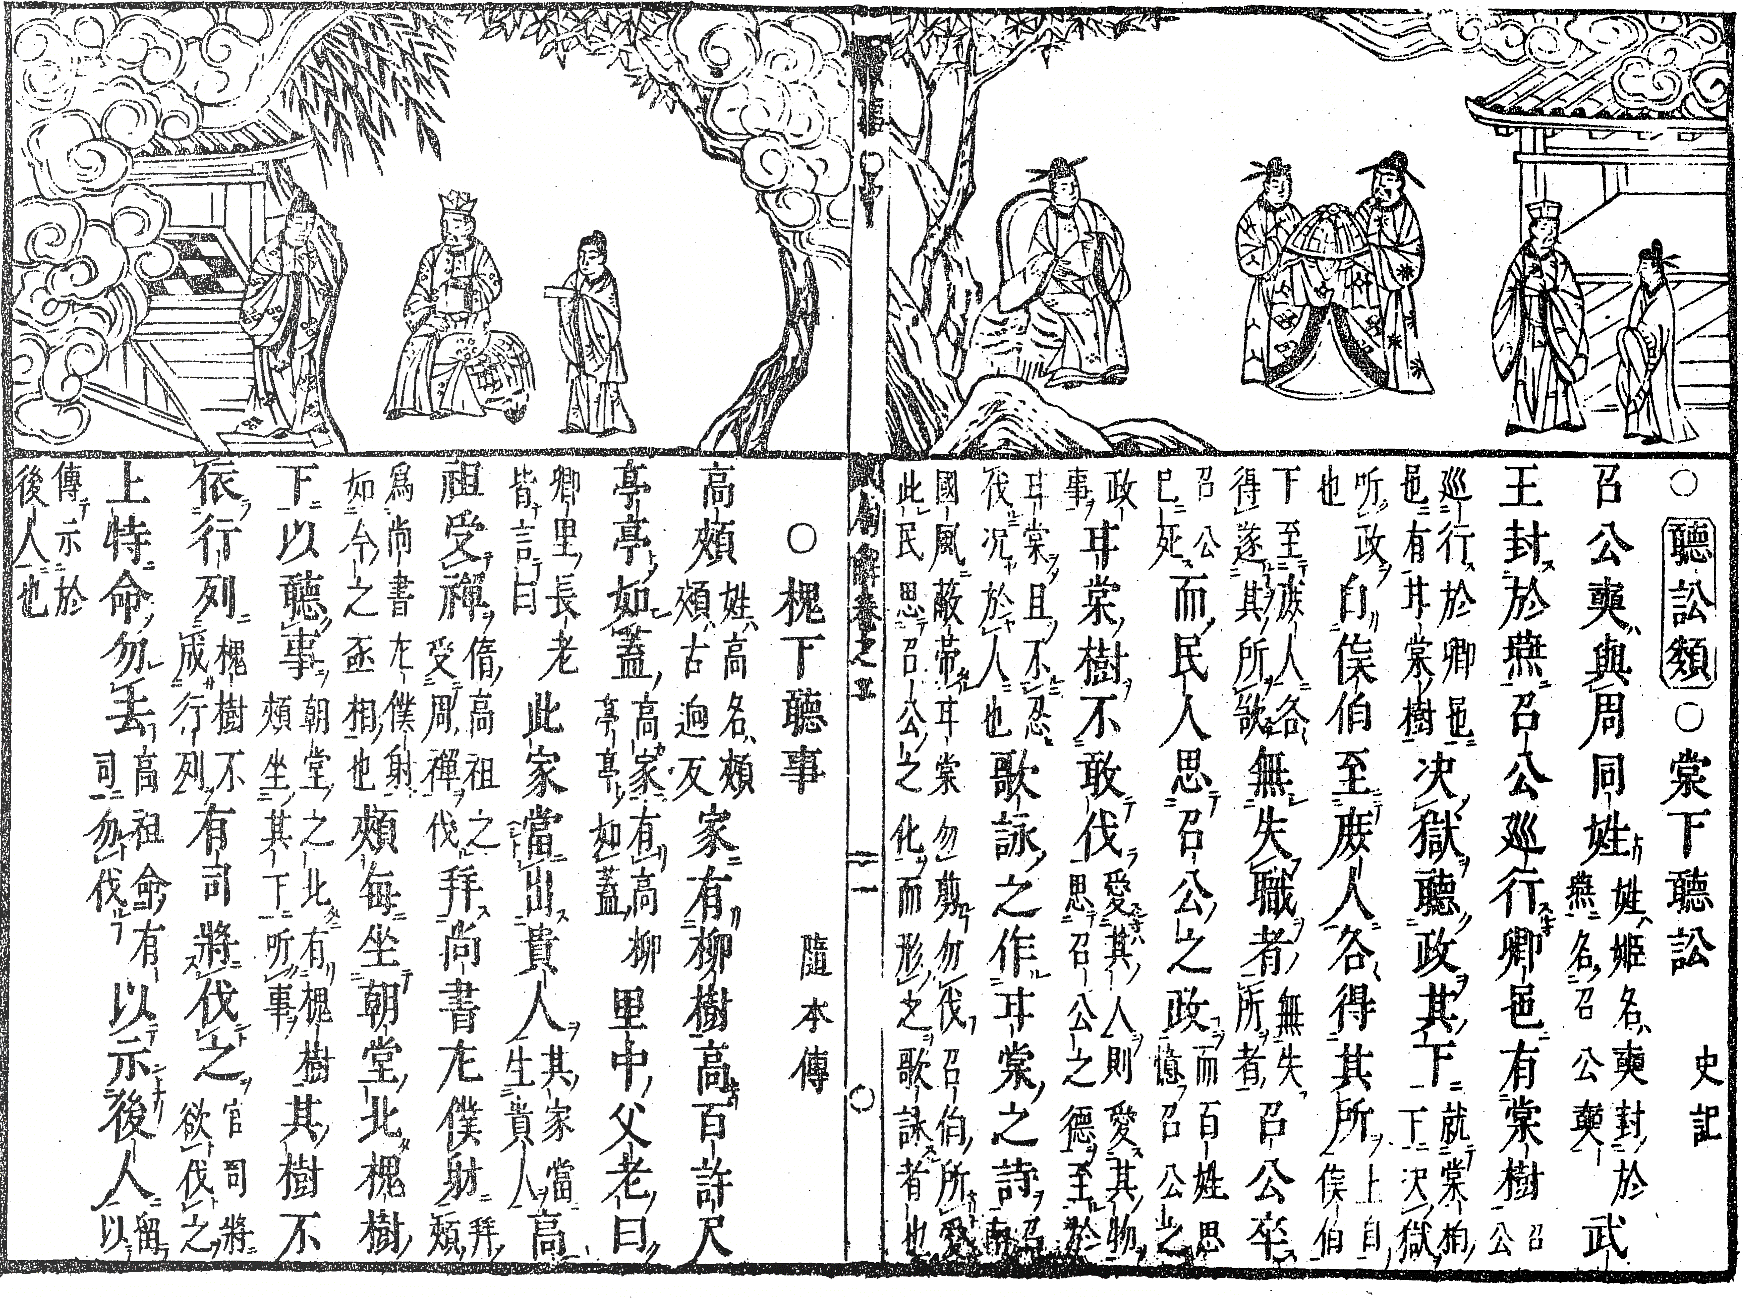 ○聽訟類○棠下聽訟 史記
召公奭與周同姓姓姬名奭封於燕名召公奭武
王封於燕召公巡行卿邑有棠樹召公
巡行於卿邑邑有甘棠樹決獄聽政其下就棠栢下決獄
听政也自侯伯至庶人各得其所上自侯伯
下至庶人各得遂其所欲無失職者無失所者召公卒
召公已死而民人思召公之政而百姓思憶召公之
政事甘棠樹不敢伐愛其人則愛其物思召公之德至於
甘棠且不忍伐况於人也歌詠之作甘棠之詩召南
國風蔽芾甘棠勿剪勿伐召伯所愛此民思召公之化而形之歌詠者也
卷之五
○槐下聽事 隨本傳
高熲姓高名熲熲古迥反家有柳樹高百許尺
亭亭如蓋高家有高柳亭亭如蓋里中父老曰
卿里長老皆言曰此家當出貴人其家當生貴人高
祖受禪隋高祖之受周禪伐拜尚書左僕射拜熲
爲尚書左僕射如今之丞相也熲每坐朝堂北槐樹
下以聽事朝堂之北有槐樹熲坐其下听事其樹不
依行列槐樹不成行列有司將伐之官司將欲伐之
上特命勿去高祖命有司勿伐以示後人留以
傳示於後人也